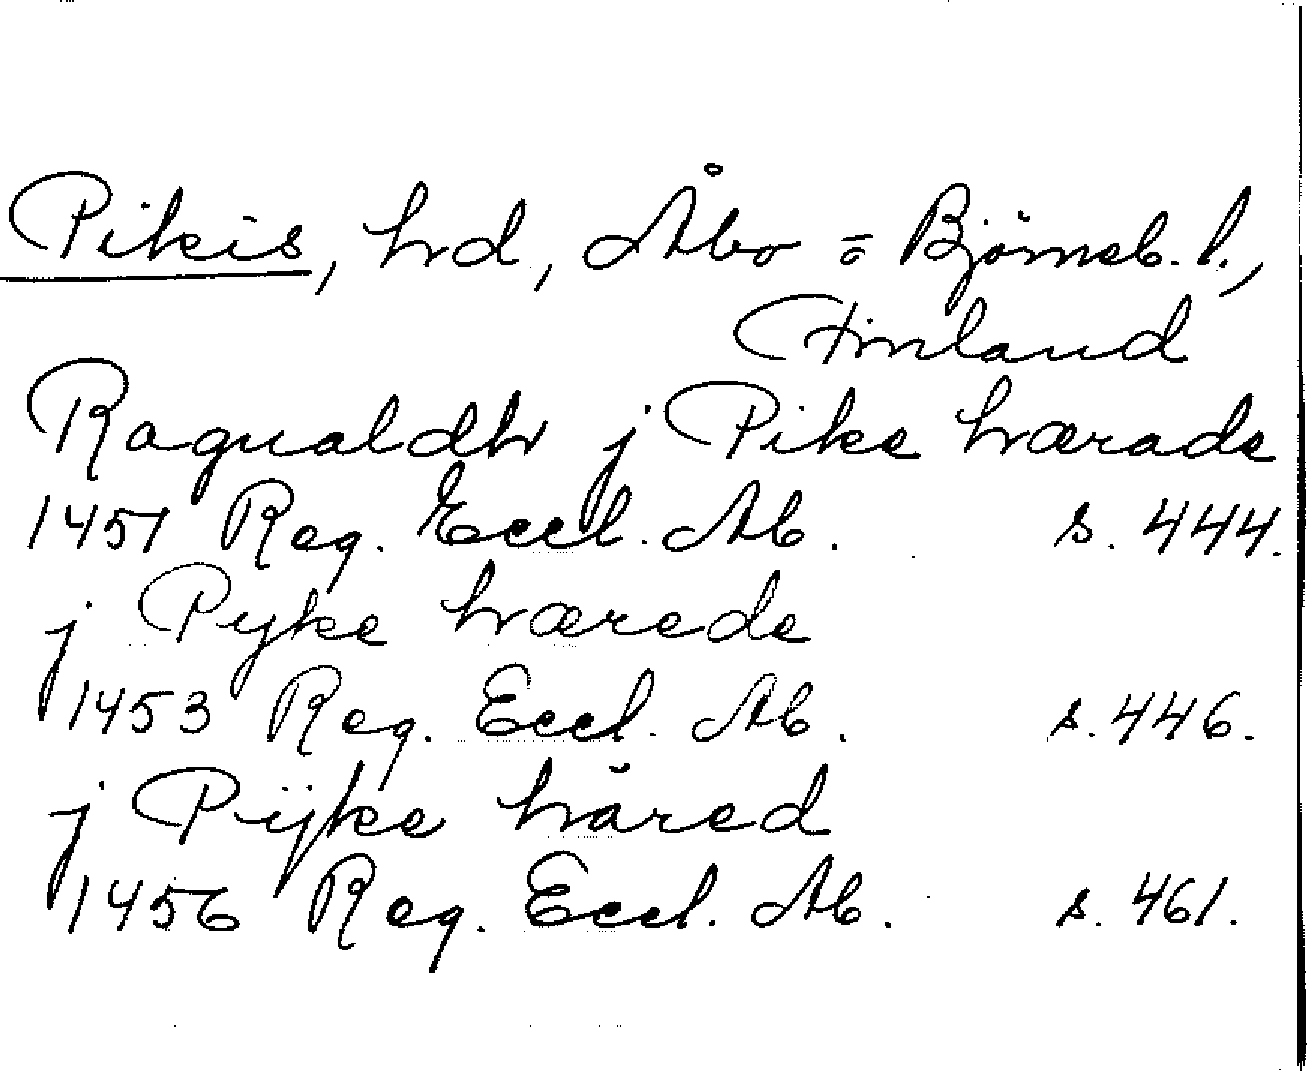 Pikis, hd, Åbo = Björneb. l.,
Finland
Ragualdh j Pike hærade
1451 Reg. Eccl. Ab. s. 444.
j Pyke hærede
1453 Reg. Eccl. Ab. s. 446.
j Pÿke håred
1456 Reg. Eccl. Ab. s. 461.